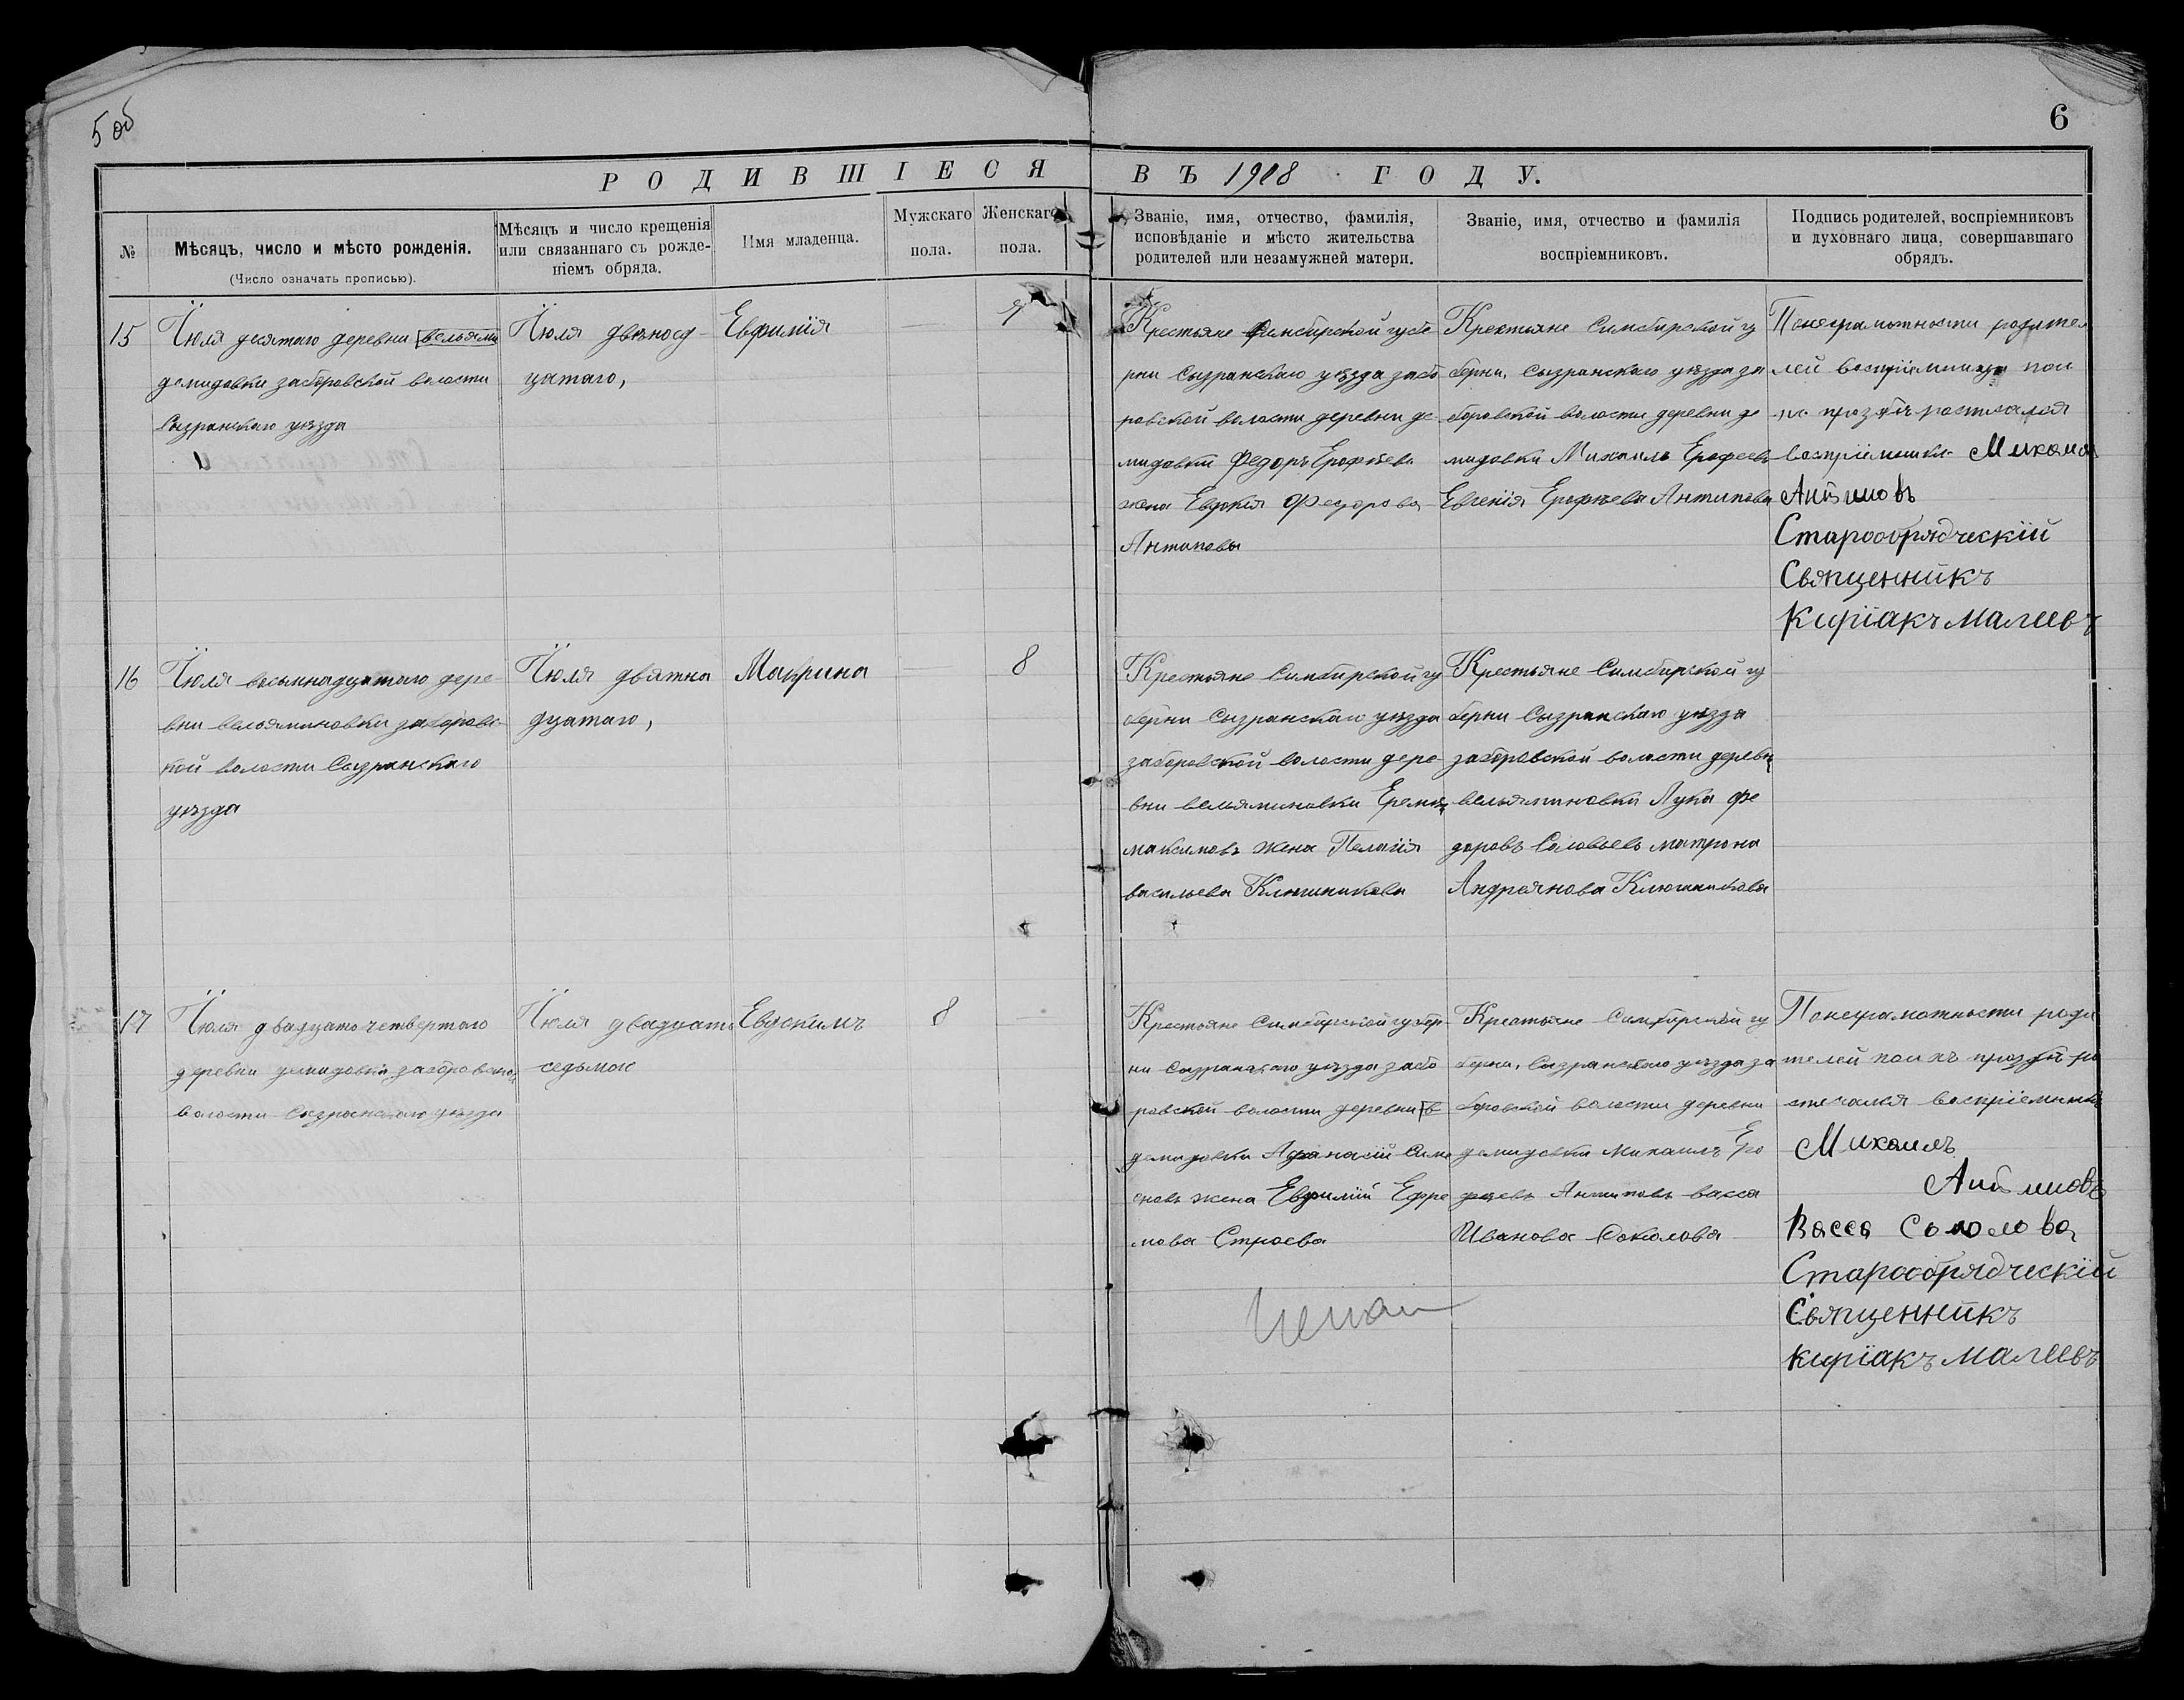 5 об
6
РОДИВШІЕСЯ ВЪ 1908 ГОДУ.
№
Мѣсяцъ, число и мѣсто рожденія.
(Число означать прописью).
Мѣсяцъ и число крещенія
или связаннаго съ рожде-
ніемъ обряда.
Имя младенца.
Мужскаго
пола.
Женскаго
пола.
Званіе, имя, отчество, фамилія,
исповѣданіе и мѣсто жительства
родителей или незамужней матери.
Званіе, имя, отчество и фамилія
воспріемниковъ.
Подпись родителей, воспріемниковъ
и духовнаго лица, совершавшаго
обрядъ.
15
Июля десятаго деревни [вельями
демидовки заборовской волости
Сызранскаго уѣзда
Июля двѣносд-
цатаго,
Евфимія
7
Крестьяне Симбирской губе
рни Сызранскаго уѣзда забо
ровской волости деревни де
мидовки Федоръ Ерофѣевъ
жена Евдокія Федорова
Антиповы
Крестьяне Симбирской гу
берни, Сызранскаго уѣзда за
боровской волости деревни де
мидовки Михаилъ Ерофеевъ
Евгенія Ерофѣева Антипова
Понеграмотности родите
лей воспріемница пои
хъ прозбѣ росписался
воспріемникъ Михаил
Антиповъ
Старообрядческій
Священникъ
Киріакъ Малѣевъ
16
Июля восьмнадцатаго дере-
вни вельяминовки заборовс-
кой волости Сызранскаго
уѣзда
Июля двятна
дцатаго,
Маврина
8
Крестьяне Симбирской гу
берни Сызранскаго уѣзда
заборовской волости дере-
вни вельяминовки Еремѣ
максимовъ жена Пелагія
васильева Ключникова
Крестьяне Симбирской гу
берни Сызранскаго уѣзда
заборовской волости деревн
вельяминовки Лука Фе
доровъ Соловьевъ матрона
Андреянова Ключникова
17
Июля двадцато четвертаго
деревни демидовки заборовской
волости Сызранскаго уѣзда
Июля двадцать
седьмое
Евдокимъ
8
Крестьяне Симбирской губер-
ни Сызранскаго уѣзда забо
ровской волости деревни [в
демидовки Афанасій Симе
оновъ жена Евфимій Ефре
мова Строева
Крестьяне Симбирской гу
берни, Сызранскаго уѣзда за
боровской волости деревни
демидовки Михаилъ Еро
феевъ Антиповъ васса
Иванова Соколова
Понеграмотности роди
телей поихъ прозбѣ ро
списался воспріемникъ
Михаилъ
Антиповъ
Васса Соколова
Старообрядческій
Священникъ
Киріакъ Малѣевъ